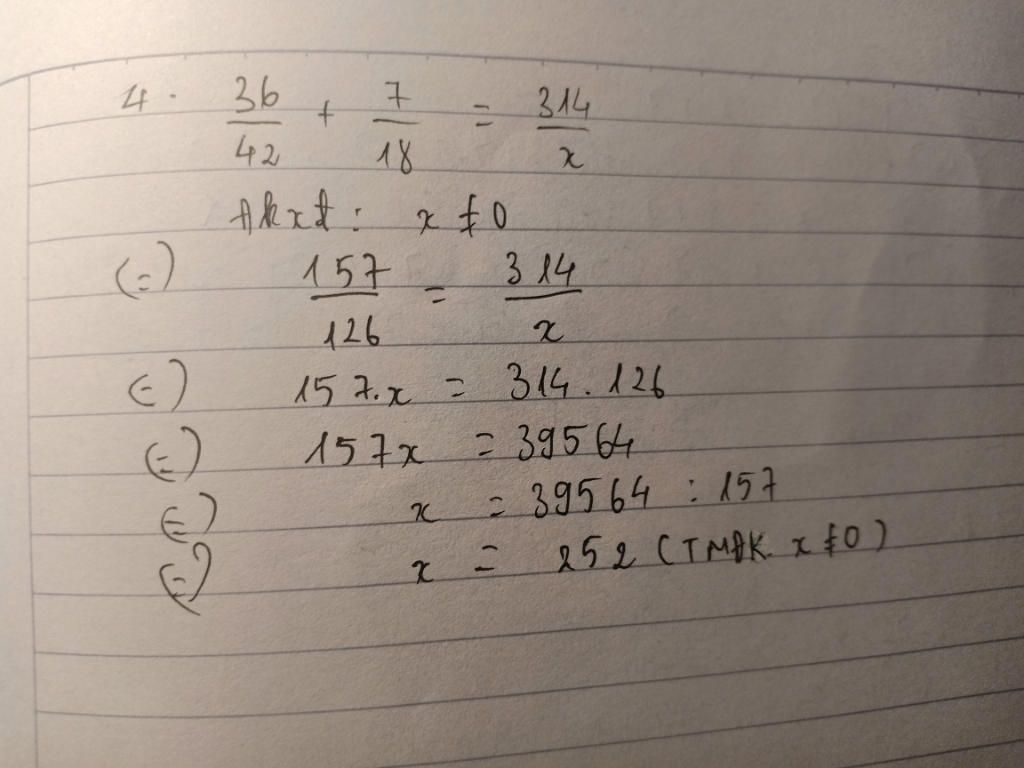 4. 36/42 + 7/18 = 314/x
ĐKXĐ: x ≠ 0
(=) 157/126 = 314/x
(=) 157.x = 314.126
(=) 157x = 39564
(=) x = 39564 : 157
(=) x = 252 (TMĐK x ≠ 0)